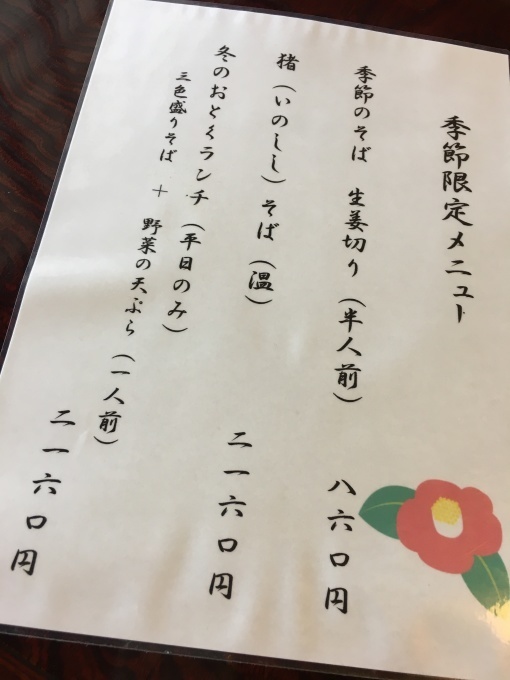 季節限定メニュー
季節のそば 生姜切り (半人前) 八六〇円
猪(いのしし)そば(温) 二一六〇円
冬のおとくランチ(平日のみ)
三色盛りそば + 野菜の天ぷら (一人前) 二一六〇円